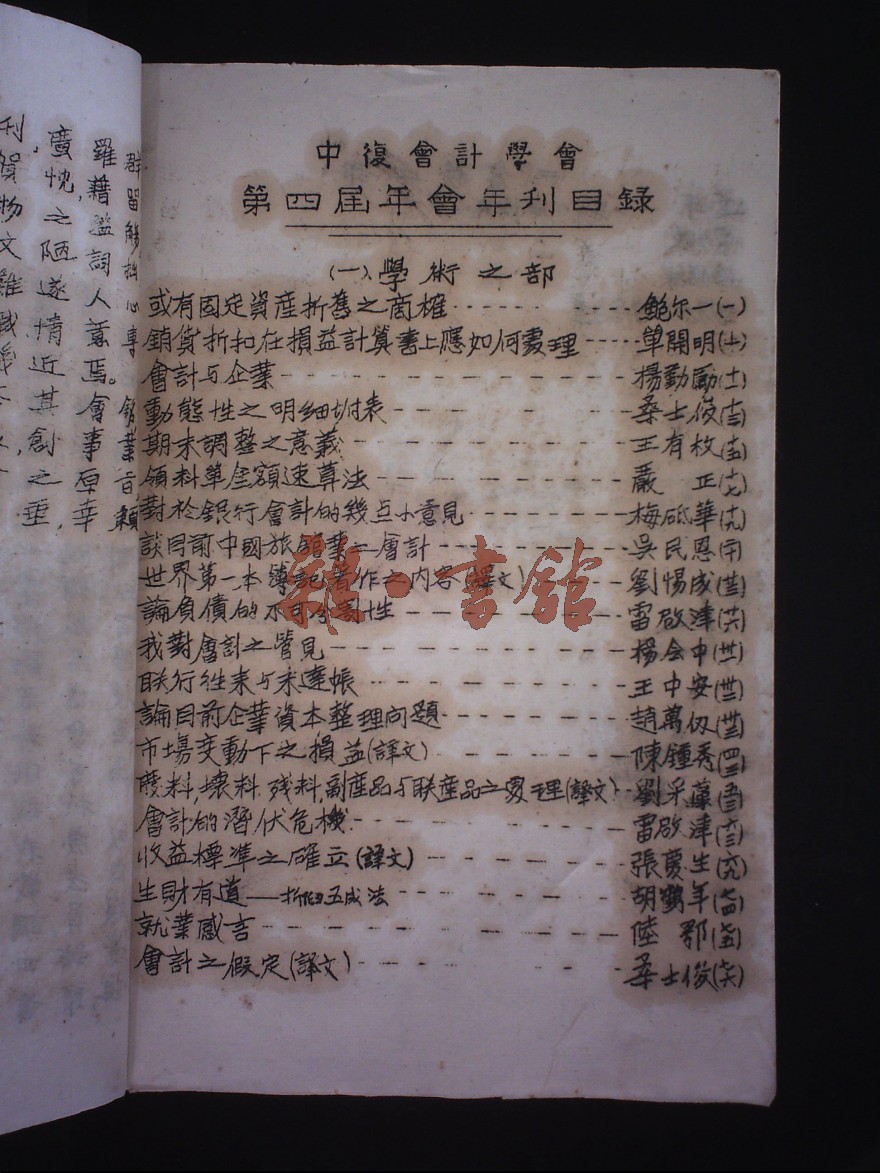 中復會計學會
第四屆年會年刊目錄
(一)、學術之部
或有固定資產折舊之商榷 鮑尔一(一)
銷貨折扣在損益計算書上應如何處理 單開明(十)
會計与企業 楊勤勵(十一)
動態性之明細坿表 桑士俊(十三)
期末調整之意義 王有枚(十五)
領料單金額速算法 嚴 正(十七)
對於銀行會計的幾点小意見 梅砥華(十九)
談目前中國旅館業之會計 吳民恩(二十)
世界第一本簿記著作之内容(譯文) 劉惕成
論負債的不可分割性 雷啟津
我對會計之管見 楊会中
联行往来与未達帳 王中安
論目前企業資本整理问題 趙萬仞
市場变動下之損益(譯文) 陳鍾秀
廢料,壞料,残料,副產品与联產品之處理(譯文) 劉采蘋
會計的潛伏危機 雷啟津
收益標準之確立(譯文) 張慶生
生財有道——折旧五成法 胡鶴年
就業感言 陸 鄂
會計之假定(譯文) 桑士俊
雜·書館
羅藉濫詞人意焉。會事原幸
廣忱之陋遂情近其創之垂,